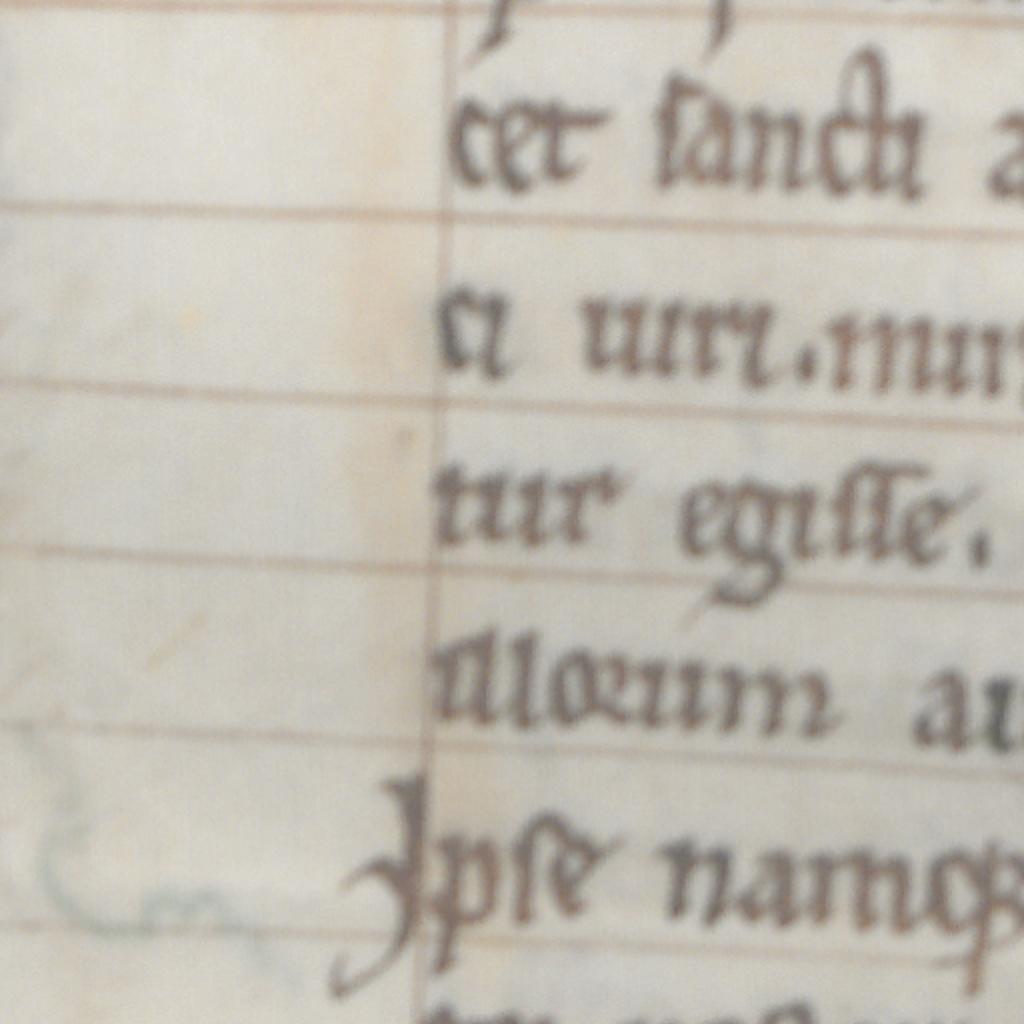 cet sancti a
ci uiri. mir
tur egisse.
illorum au
Ipse namq;